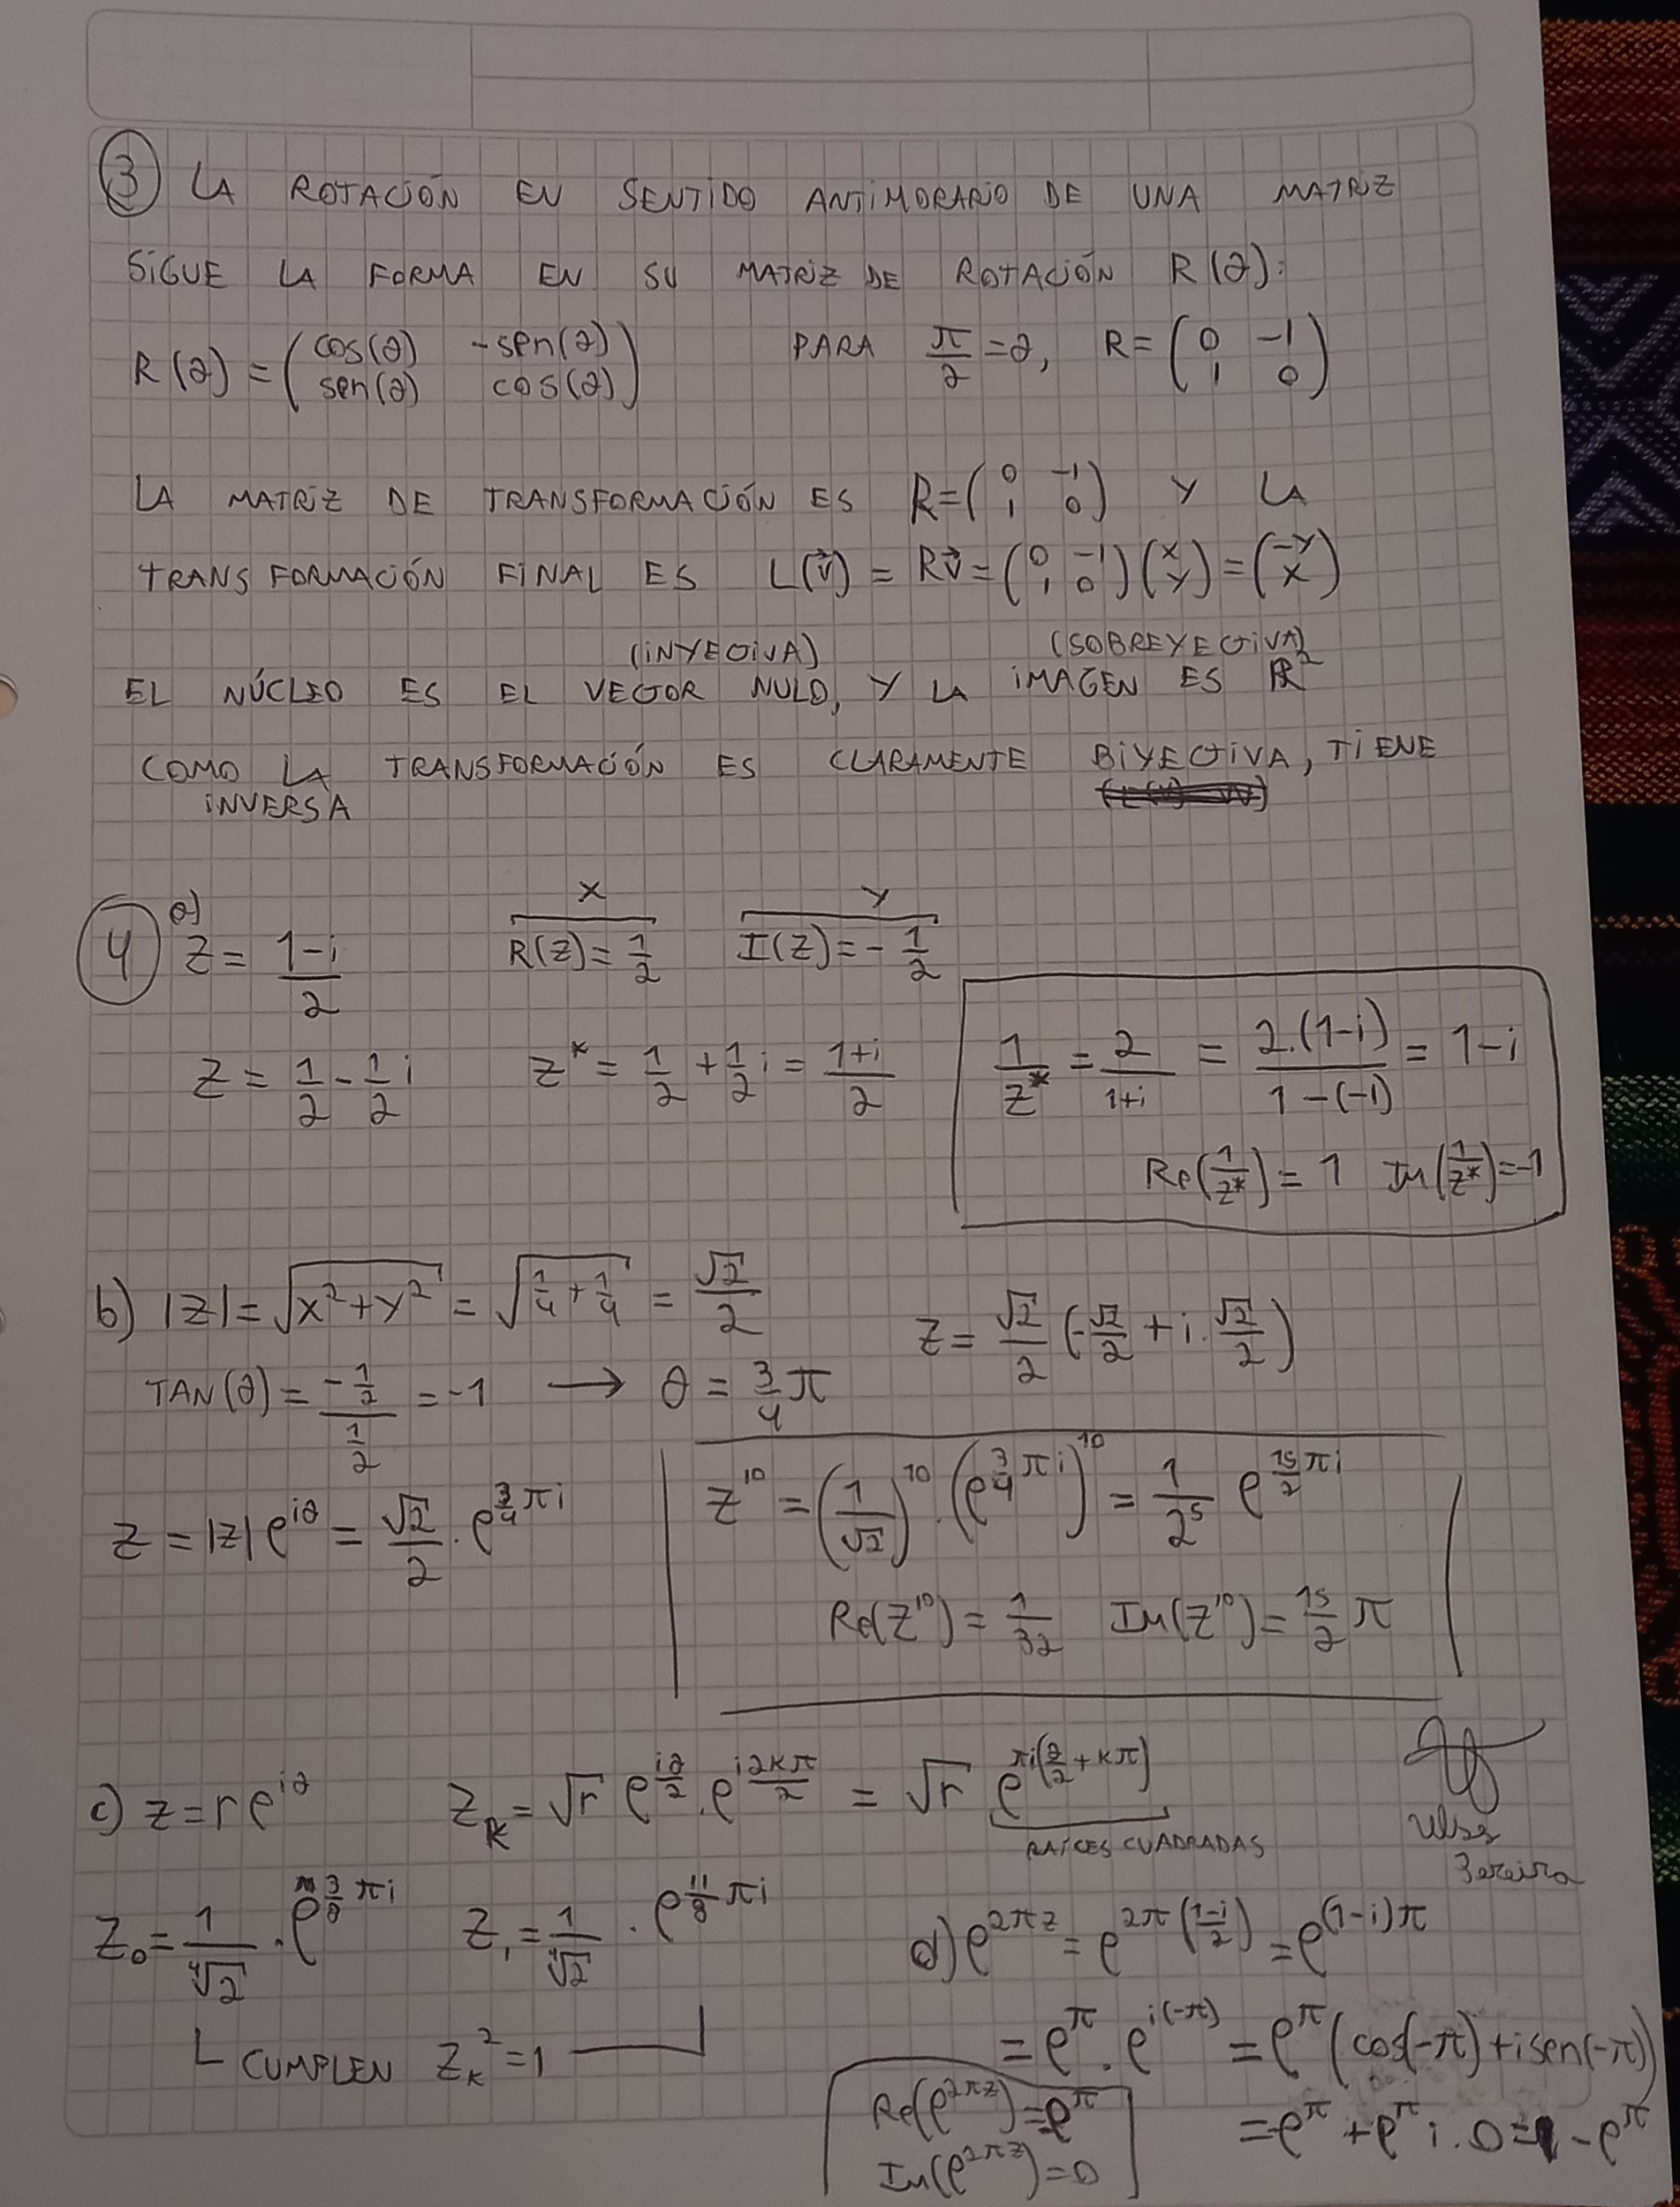 3 LA ROTACIÓN EN SENTIDO ANTIHORARIO DE UNA MATRIZ
SIGUE LA FORMA EN SU MATRIZ DE ROTACIÓN R(∂):
R(∂) = (cos(∂) -sen(∂) ; sen(∂) cos(∂)) PARA π/2 = ∂, R = (0 -1 ; 1 0)
LA MATRIZ DE TRANSFORMACIÓN ES R = (0 -1 ; 1 0) Y LA
TRANSFORMACIÓN FINAL ES L(v⃗) = Rv⃗ = (0 -1 ; 1 0)(x ; y) = (-y ; x)
(INYECTIVA) (SOBREYECTIVA)
EL NÚCLEO ES EL VECTOR NULO, Y LA IMAGEN ES ℝ²
COMO LA TRANSFORMACIÓN ES CLARAMENTE BIYECTIVA, TIENE
INVERSA
4 a) z = (1-i)/2 x R(z) = 1/2 y I(z) = -1/2
z = 1/2 - 1/2 i z* = 1/2 + 1/2 i = (1+i)/2 1/z* = 2/(1+i) = 2.(1-i)/(1-(-1)) = 1-i
Re(1/z*) = 1 Im(1/z*) = -1
b) |z| = √(x²+y²) = √(1/4 + 1/4) = √2/2 z = √2/2 (-√2/2 + i.√2/2)
TAN(∂) = (-1/2)/(1/2) = -1 → θ = 3/4 π
z = |z| e^(i∂) = √2/2 . e^(3/4 πi) z^10 = (1/√2)^10 . (e^(3/4 πi))^10 = 1/2^5 e^(15/2 πi)
Re(z^10) = 1/32 Im(z^10) = 15/2 π
c) z = r e^(i∂) z_k = √r e^(i∂/2) . e^(i2kπ/2) = √r e^(πi(∂/2 + kπ))
RAÍCES CUADRADAS
z₀ = 1/⁴√2 . e^(3/8 πi) z₁ = 1/⁴√2 . e^(11/8 πi)
CUMPLEN z_k² = 1
d) e^(2πz) = e^(2π((1-i)/2)) = e^((1-i)π)
= e^π . e^(i(-π)) = e^π (cos(-π) + i sen(-π))
= e^π + e^π i . 0 = - e^π
Re(e^(2πz)) = e^π
Im(e^(2πz)) = 0